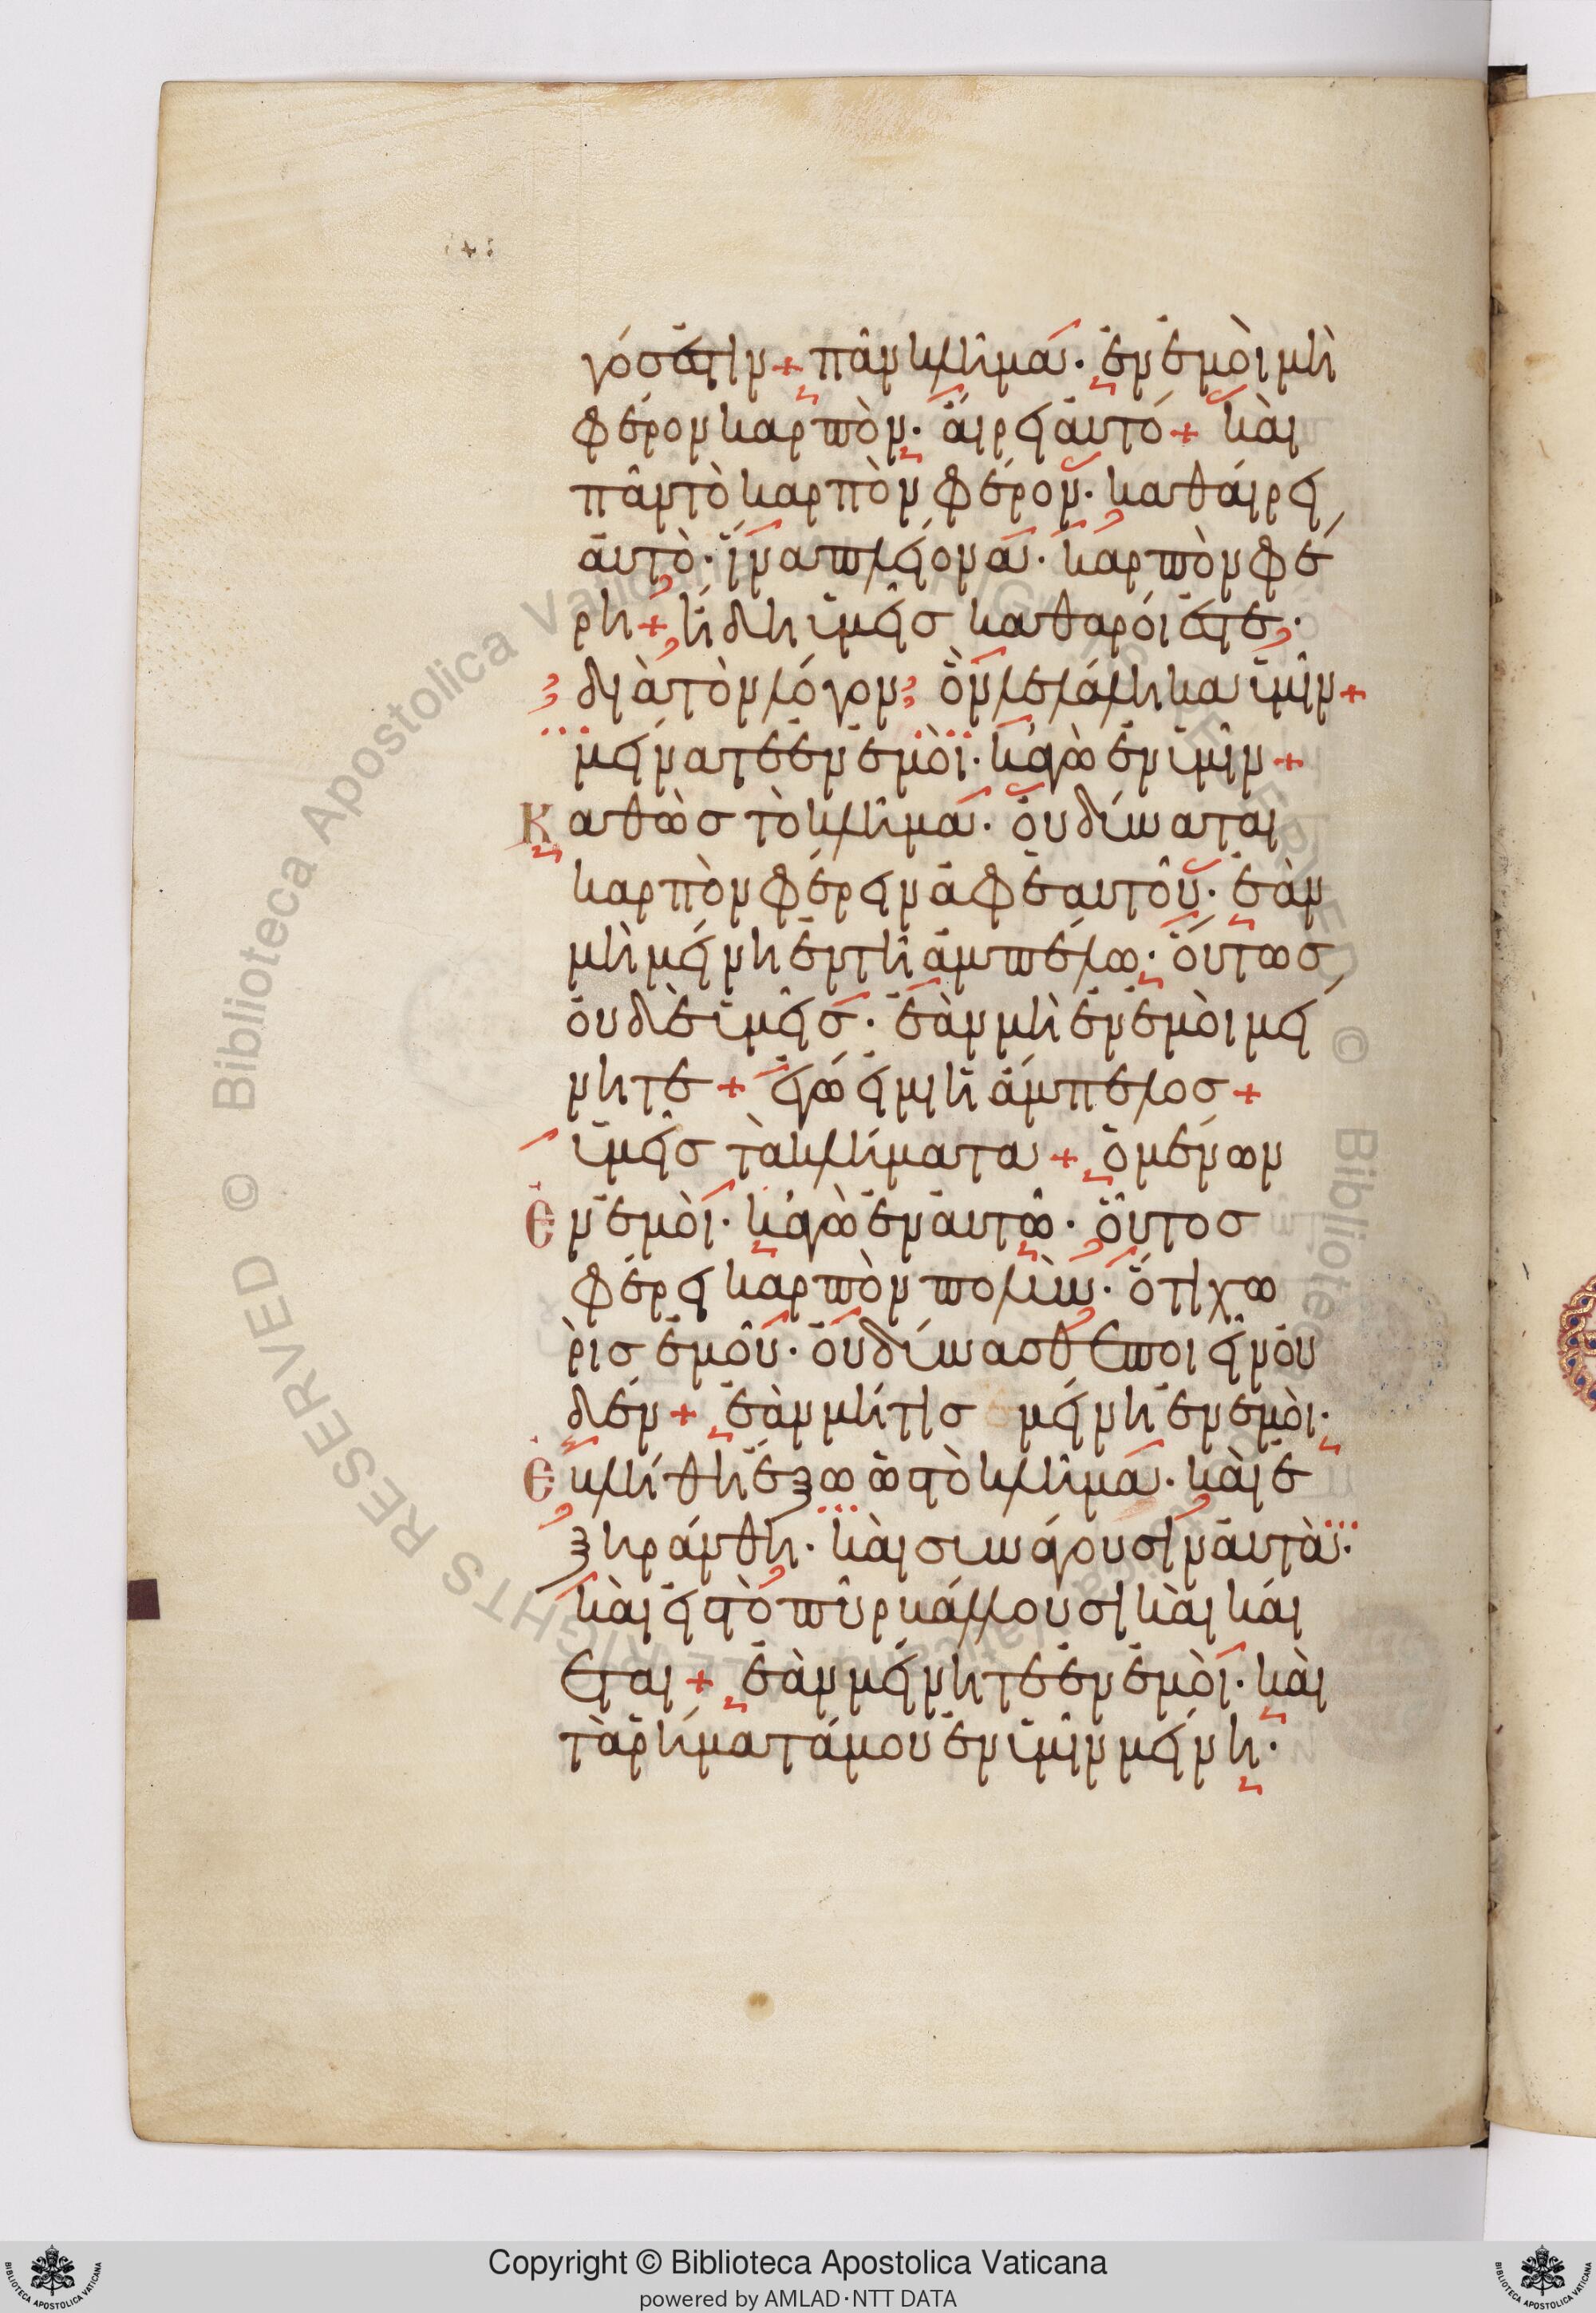 γός ἐστιν + πᾶν κλῆμα · ἐν ἐμοὶ μὴ
φέρον καρπὸν · ἄιρει ἀυτό + κὰι
πᾶν τὸ καρπὸν φέρον · καθάιρει
ἀυτὸ · ἵνα πλείονα · καρπὸν φέ
ρη + ἤδη ὑμεῖς καθαρόι ἐστε ·
διὰ τὸν λόγον ὃν λελάληκα ὑμῖν +
μείνατε ἐν ἐμὸι · κἀγὼ ἐν ὑμῖν +
Καθὼς τὸ κλῆμα · ὀυ δύναται
καρπὸν φέρειν ἀφ ἑαυτοῦ · ἐὰν
μὴ μείνη ἐν τῆ ἀμπέλω · ὅυτως
ὀυδὲ ὑμεῖς · ἐὰν μὴ ἐν ἐμὸι μεί
νητε + ἐγώ ἐιμι ἡ ἄμπελος +
ὑμεῖς τὰ κλήματα + ὁ μένων
Ἐν ἐμὸι · κἀγὼ ἐν ἀυτῶ · ὅυτος
φέρει καρπὸν πολὺν · ὅτι χω
ρὶς ἐμοῦ · ὀυ δύνασθε ποιεῖν ὀυ
δέν + ἐὰν μήτις μείνη ἐν ἐμὸι ·
Ἐκλήθη ἔξω ὡς τὸ κλῆμα · κὰι ἐ
ξηράνθη · κὰι συνάγουσιν ἀυτὰ ·
κὰι ἐις τὸ πῦρ κάλλουσι κὰι κάι
εται + ἐὰν μείνητε ἐν ἐμὸι · κὰι
τὰ ῥήματά μου ἐν ὑμῖν μείνη ·
Copyright © Biblioteca Apostolica Vaticana
powered by AMLAD·NTT DATA